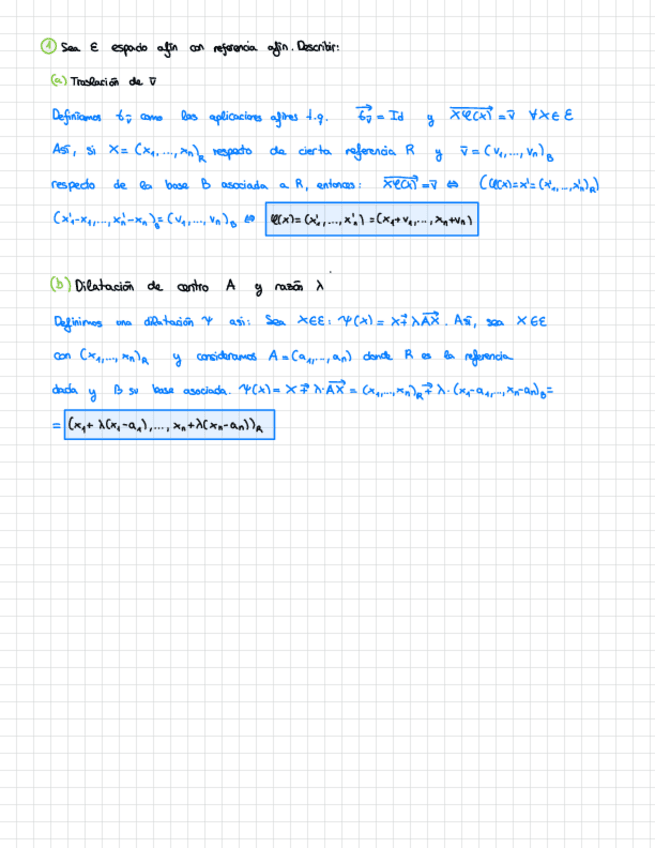 ① Sea E espacio afín con referencia afín. Describir:
(a) Traslación de v̄
Definimos t_v̄ como las aplicaciones afines t.q. t_v̄→ = Id y Xφ(x)→ = v̄ ∀X∈E
Así, si X = (x₁,...,xₙ)_R respecto de cierta referencia R y v̄ = (v₁,...,vₙ)_B
respecto de la base B asociada a R, entonces: Xφ(x)→ = v̄ ⇔ (φ(x)=x'=(x'₁,...,x'ₙ)_R)
(x'₁-x₁,...,x'ₙ-xₙ)_B = (v₁,...,vₙ)_B ⇔ φ(x)=(x'₁,...,x'ₙ)=(x₁+v₁,...,xₙ+vₙ)
(b) Dilatación de centro A y razón λ
Definimos una dilatación Ψ así: Sea X∈E: Ψ(x) = X +→ λAX→. Así, sea X∈E
con (x₁,...,xₙ)_R y consideramos A=(a₁,...,aₙ) donde R es la referencia
dada y B su base asociada. Ψ(x) = X +→ λ·AX→ = (x₁,...,xₙ)_R +→ λ·(x₁-a₁,...,xₙ-aₙ)_B =
= (x₁+λ(x₁-a₁),...,xₙ+λ(xₙ-aₙ))_R